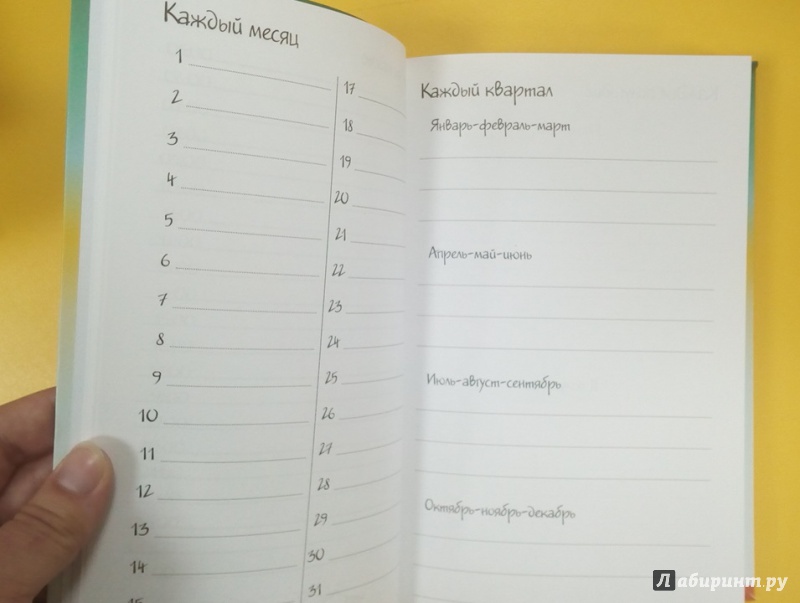 Каждый месяц
1
2
3
4
5
6
7
8
9
10
11
12
13
14
15
17
18
19
20
21
22
23
24
25
26
27
28
29
30
31
Каждый квартал
Январь-февраль-март
Апрель-май-июнь
Июль-август-сентябрь
Октябрь-ноябрь-декабрь
Лабиринт.ру